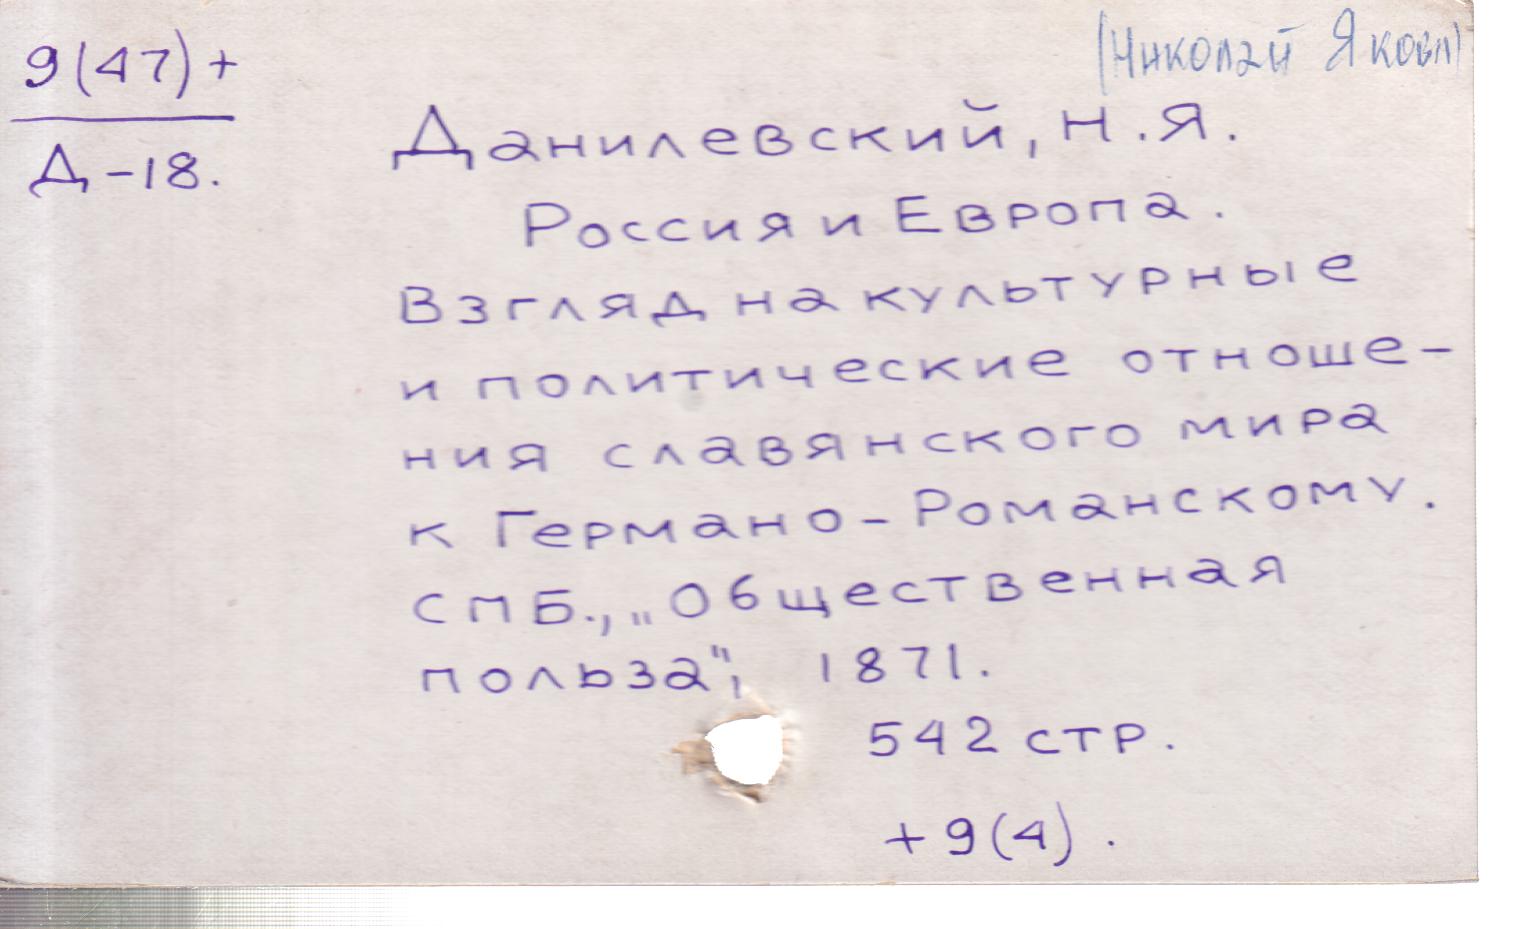 (Николай Яковл)
9(47)+
Д-18.
Данилевский, Н.Я.
Россия и Европа.
Взгляд на культурные
и политические отноше-
ния славянского мира
к Германо-Романскому.
СПБ., „Общественная
польза", 1871.
542 стр.
+9(4).